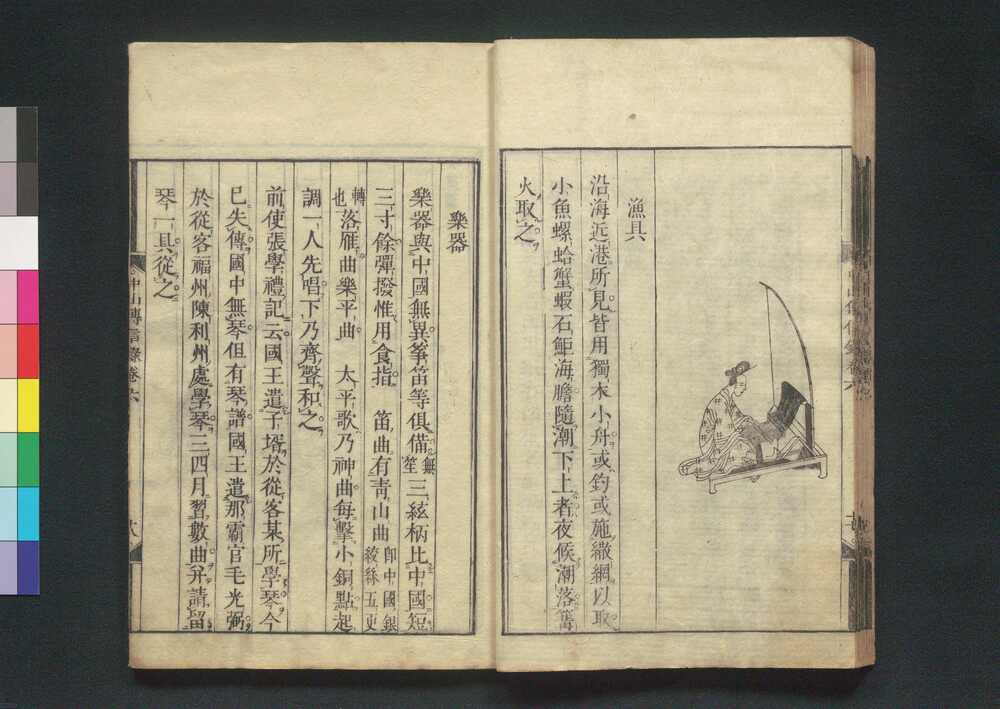 漁具
沿海近港所見皆用獨木小舟或釣或施繒網以取
小魚螺蛤蟹蝦石鮔海膽隨潮下上者夜候潮落篝
火取之
樂器
樂器與中國無異箏笛等俱備無笙三絃柄比中國短
三寸餘彈撥惟用食指 笛曲有靑山曲卽中國銀絞絲五更
轉也落雁曲樂平曲 太平歌乃神曲每擊小銅點起
調一人先唱下乃齊聲和之
前使張學禮記云國王遣子壻於從客某所學琴今
已失傳國中無琴但有琴譜國王遣那霸官毛光弼
於從客福州陳利州處學琴三四月習數曲并請留
琴一具從之
中山傳信錄卷六